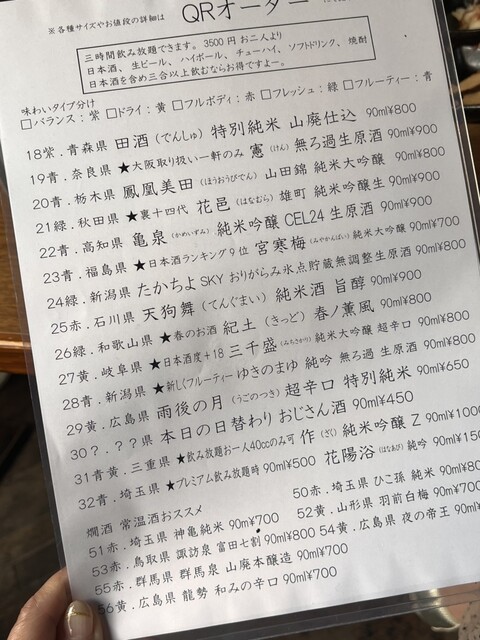 ※各種サイズやお値段の詳細は QRオーダー
三時間飲み放題できます。3500円お二人より
日本酒、生ビール、ハイボール、チューハイ、ソフトドリンク、焼酎
日本酒を含め三合以上飲むならお得ですよー。
味わいタイプ分け
□バランス：紫 □ドライ：黄 □フルボディ：赤 □フレッシュ：緑 □フルーティー：青
18紫．青森県 田酒（でんしゅ）特別純米 山廃仕込 90ml¥800
19青．奈良県 ★大阪取り扱い一軒のみ 憲（けん）無ろ過生原酒 90ml¥900
20青．栃木県 鳳凰美田（ほうおうびでん）山田錦 純米大吟醸 90ml¥800
21緑．秋田県 ★裏十四代 花邑（はなむら）雄町 純米吟醸生 90ml¥900
22青．高知県 亀泉（かめいずみ）純米吟醸 CEL24 生原酒 90ml¥900
23青．福島県 ★日本酒ランキング9位 宮寒梅（みやかんばい）純米大吟醸 90ml¥700
24緑．新潟県 たかちよSKY おりがらみ氷点貯蔵無調整生原酒 90ml¥800
25赤．石川県 天狗舞（てんぐまい）純米酒 旨醇 90ml¥900
26緑．和歌山県 ★春のお酒 紀土（きっど）春ノ薫風 90ml¥800
27黄．岐阜県 ★日本酒度+18 三千盛（みちさかり）純米大吟醸 超辛口 90ml¥800
28青．新潟県 ★新しくフルーティー ゆきのまゆ 純吟 無ろ過 生原酒 90ml¥800
29黄．広島県 雨後の月（うごのつき）超辛口 特別純米 90ml¥650
30?．??県 本日の日替わり おじさん酒 90ml¥450
31青黄．三重県 ★飲み放題お一人40ccのみ可 作（ざく）純米吟醸 Z 90ml¥1000
32青．埼玉県 ★プレミアム飲み放題時 90ml¥500 花陽浴（はなあび）純吟 90ml¥150
燗酒 常温酒おススメ
50赤．埼玉県 ひこ孫 純米 90ml¥800
51赤．埼玉県 神亀純米 90ml¥700
52黄．山形県 羽前白梅 90ml¥700
53赤．鳥取県 諏訪泉 富田七割 90ml¥800
54黄．広島県 夜の帝王 90ml¥
55赤．群馬県 群馬泉 山廃本醸造 90ml¥700
56黄．広島県 龍勢 和みの辛口 90ml¥700